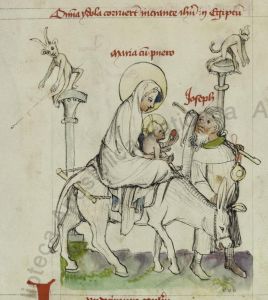 Om̄ia ydola corruerūt intrante ihū in Egiptū
maria cū puero
Joseph